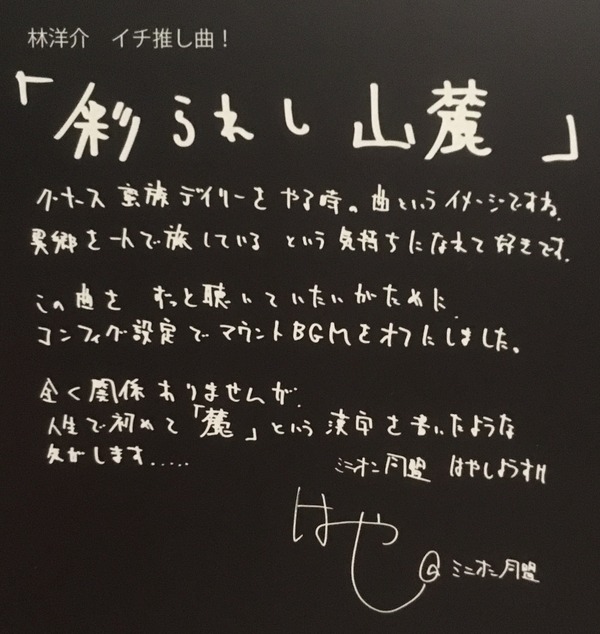 林洋介　イチ推し曲！
「彩られし山麓」
グナース蛮族デイリーをやる時の曲というイメージですね。
異郷を一人で旅している という気持ちになれて好きです。
この曲を ずっと聴いていたいがために、
コンフィグ設定でマウントBGMをオフにしました。
全く関係ありませんが、
人生で初めて「麓」という漢字を書いたような
気がします.....
ミニオン同盟 はやしようすけ
はやし@ミニオン同盟